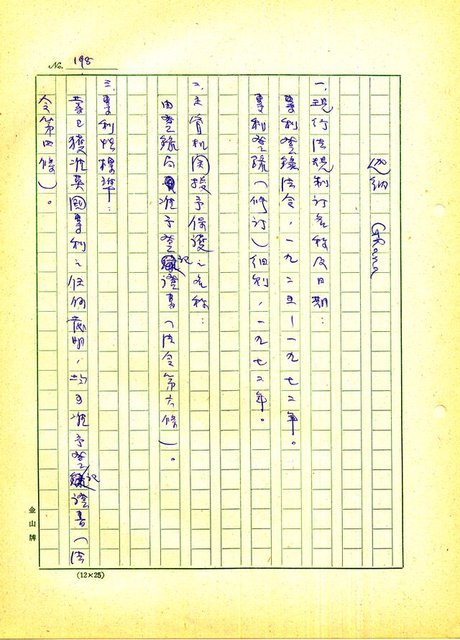 No. 198
迦納 Ghana
一、現行法規制訂名称及日期：
專利登録法令，一九二五－一九七二年。
專利登録（修訂）細則，一九七二年。
二、主管机関授予保護之名称：
由登録局准予登記證書（法令第六條）。
三、專利性標準：
蓋已獲准英國專利之任何發明，均可准予登記證書（法
令第四條）。
金山牌
(12×25)